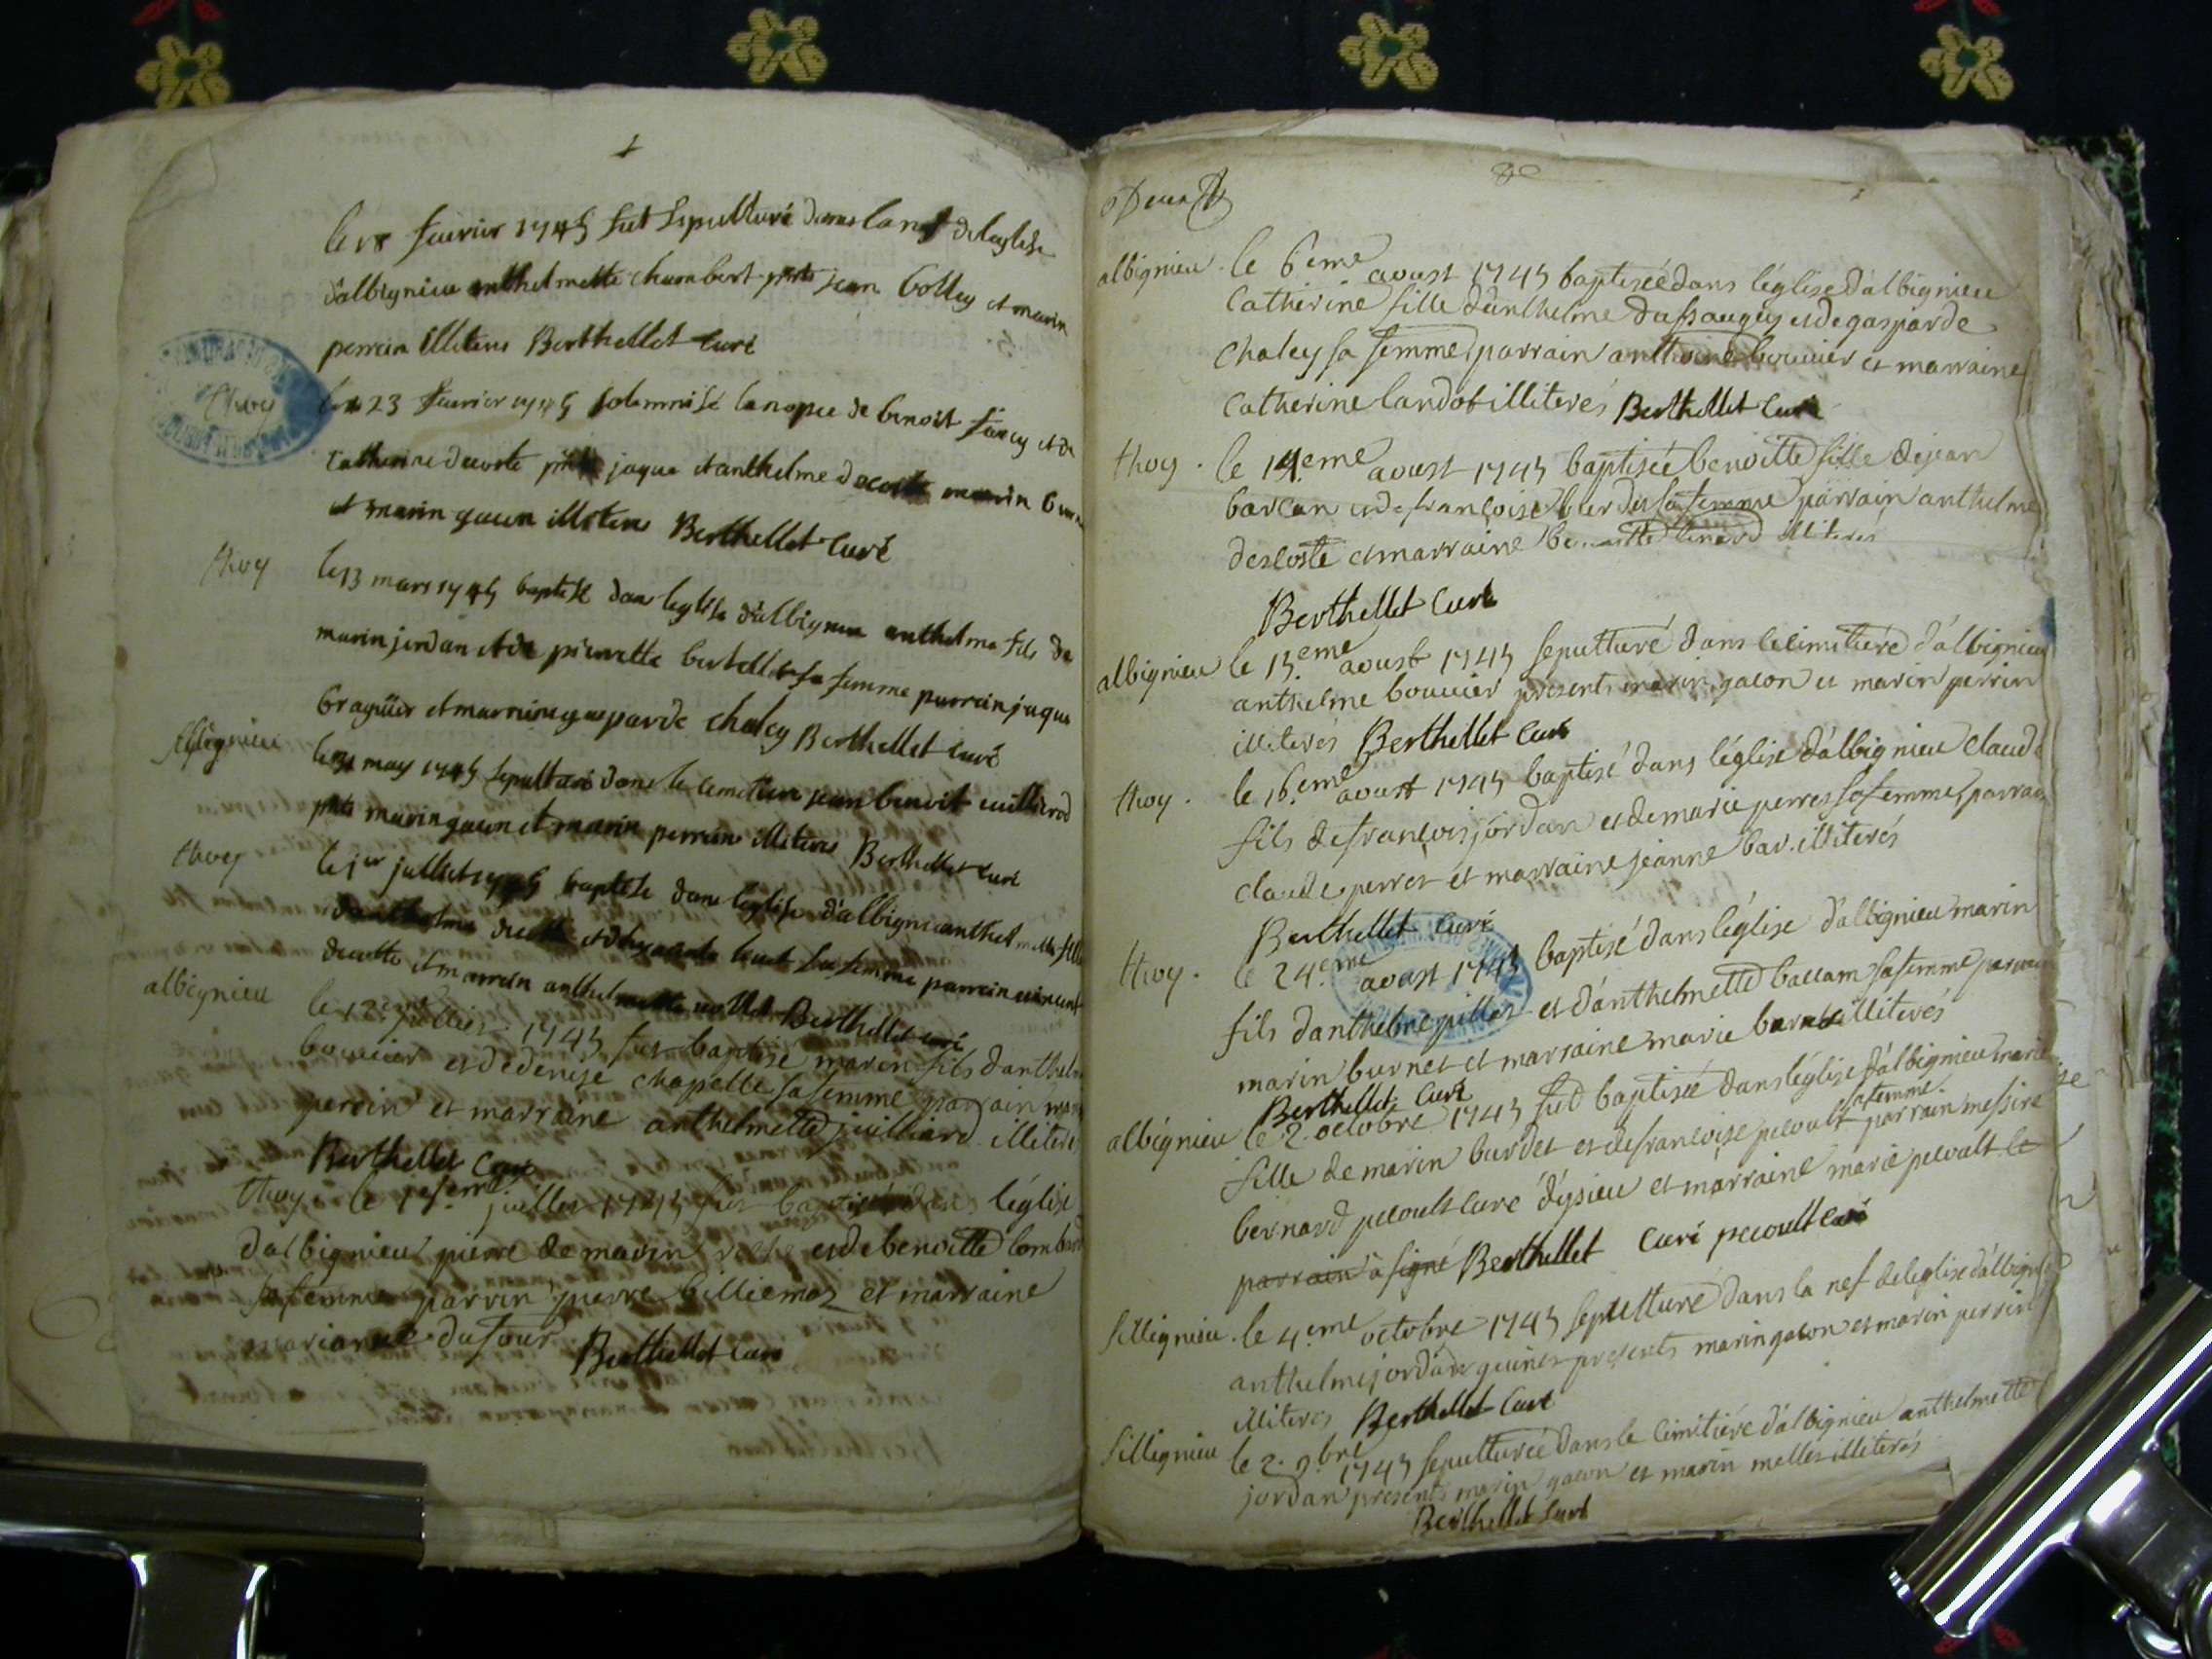 le 18 feurier 1745 fut sepulturé dans la nef de leglise
d'albignieu anthelmette chambert pnts jean bolley et marin
perrein illiteres Berthellet curé
le 23 feurier 1745 solemnisé la nopce de benoit et de
Catherine decoste pnts jaque et anthelme decoste marin
et marin gacon illiteres Berthellet curé
thoy
le 13 mars 1745 baptisé dans leglise d'albignieu anthelme fils de
marin jordan et de pierrette bertellet sa femme parrein jaque
et marreine gasparde chaley Berthellet curé
Silignieu
le may 1745 sepulturé dans le cemetiere jean benoit
pnts marin gacon et marin perrein illiteres Berthellet curé
thoey
le 1er julliet 1745 baptisée dans leglise d'albignieu anthelmette fille
d'anthelme decotte et sa femme parrein
decotte et marrein anthelmette Berthellet curé
albignieu
le 12eme juillier 1745 fut baptisé marin fils d'anthelme
bouuier et de denise chapelle sa femme parrain marin
perrin et marraine anthelmette juilliard illiterés
Berthellet Curé
thoy le juillet 1745 fut baptisé dans l'église
d'albignieu pierre de marin et de benoitte lombard
sa femme parrin pierre billiemaz et marraine
marianne dufour Berthellet curé
Deux
albignieu. le 6eme aoust 1745 baptiseé dans l'église d'albignieu
Catherine fille d'anthelme dussaugey et de gasparde
Chaley sa femme parrain anthoine bouuier et marraine
Catherine landot illiterés Berthellet Curé
thoy. le 14.eme aoust 1745 baptiseé benoitte fille de jean
barcan et de françoise burdet sa femme parrain anthelme
descoste et marraine benoitte illiterés
Berthellet Curé
albignieu le 15.eme aoust 1745 sepulturé dans le cimitiere d'albignieu
anthelme bouuier présents marin gacon et marin perrin
illiterés Berthellet Curé
thoy. le 16.eme aoust 1745 baptisé dans l'église d'albignieu claude
fils de françois jordan et de marie perret sa femme, parrain
claude perret et marraine jeanne bar. illiterés
Berthellet Curé
thoy. le 24.eme aoust 1745 baptisé dans l'église d'albignieu marin
fils d'anthelme pillet et d'anthelmette ballam sa femme parrain
marin burnet et marraine marie burnet illiterés
Berthellet Curé
albignieu le 2. octobre 1745 fut baptiseé dans l'église d'albignieu marie
fille de marin burdet et de françoise pecoult sa femme parrain messire
bernard pecoult curé d'ysieu et marraine marie pecoult le
parrain a signé Berthellet Curé pecoult Curé
Sillignieu. le 4.eme octobre 1745 sepulturé dans la nef de leglise d'albignieu
anthelme jordan guinet presents marin gacon et marin perrin
illiterés Berthellet Curé
Sillignieu le 2. 9.bre 1745 sepultureé dans le cimitiere d'albignieu anthelmette
jordan presents marin gacon et marin mellet illiterés
Berthellet Curé